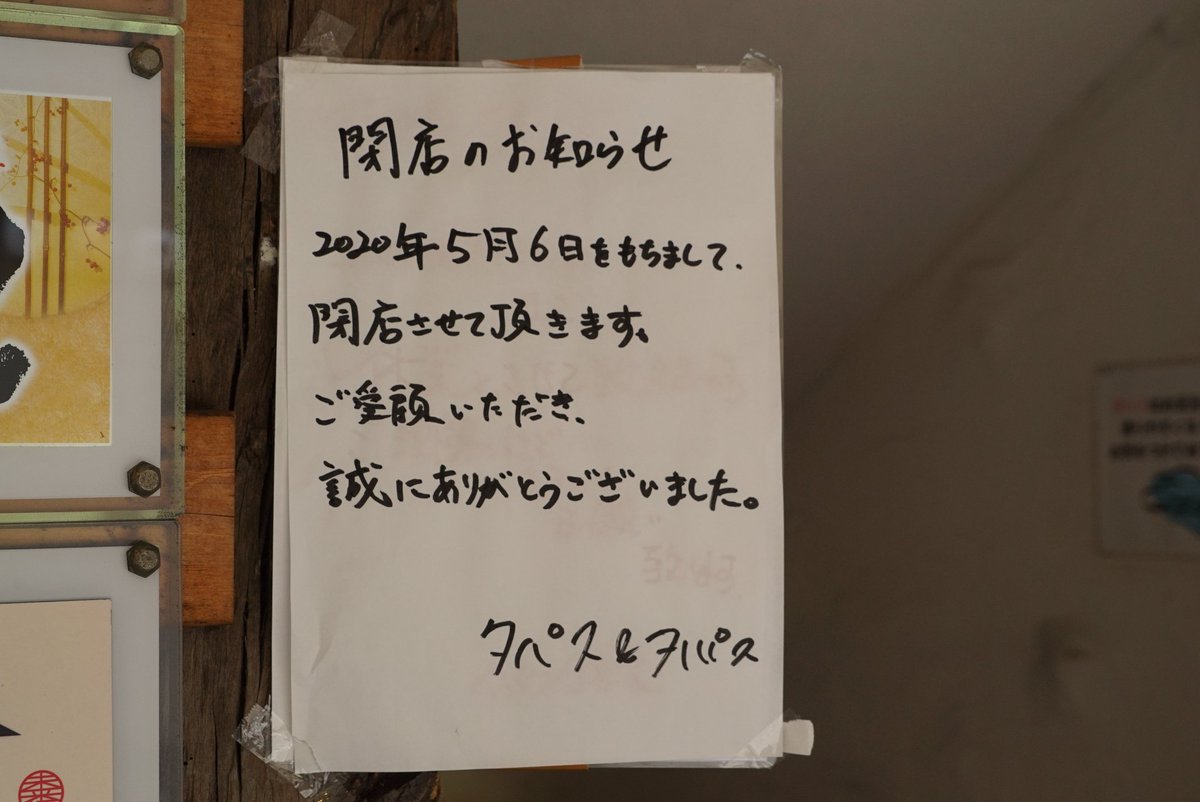 閉店のお知らせ
2020年5月6日をもちまして、
閉店させて頂きます。
ご愛顧いただき、
誠にありがとうございました。
タパス&タパス